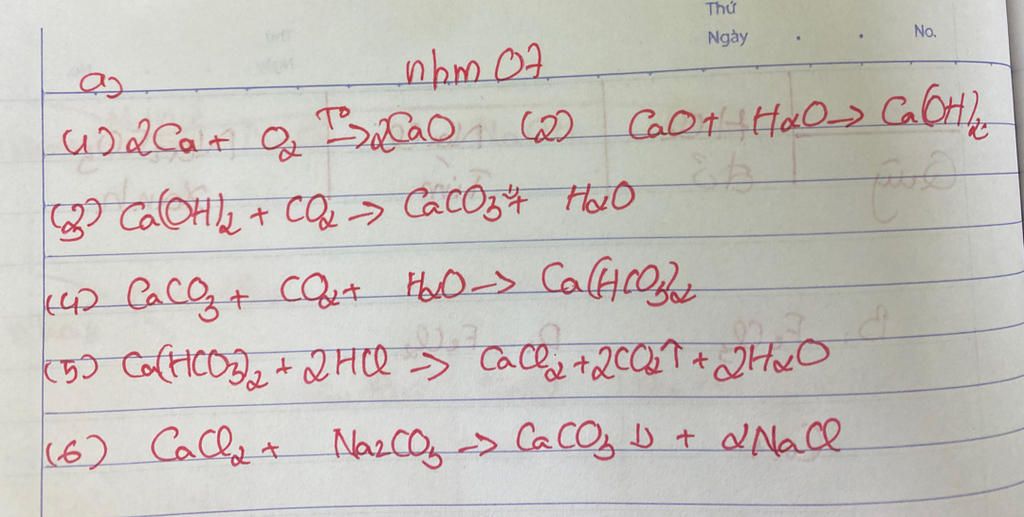 Thứ
Ngày . . No.
a) nhm 07
(1) 2Ca + O₂ T⁰→ 2CaO (2) CaO + H₂O → Ca(OH)₂
(3) Ca(OH)₂ + CO₂ → CaCO₃↓ + H₂O
(4) CaCO₃ + CO₂ + H₂O → Ca(HCO₃)₂
(5) Ca(HCO₃)₂ + 2HCl → CaCl₂ + 2CO₂↑ + 2H₂O
(6) CaCl₂ + Na₂CO₃ → CaCO₃↓ + 2NaCl